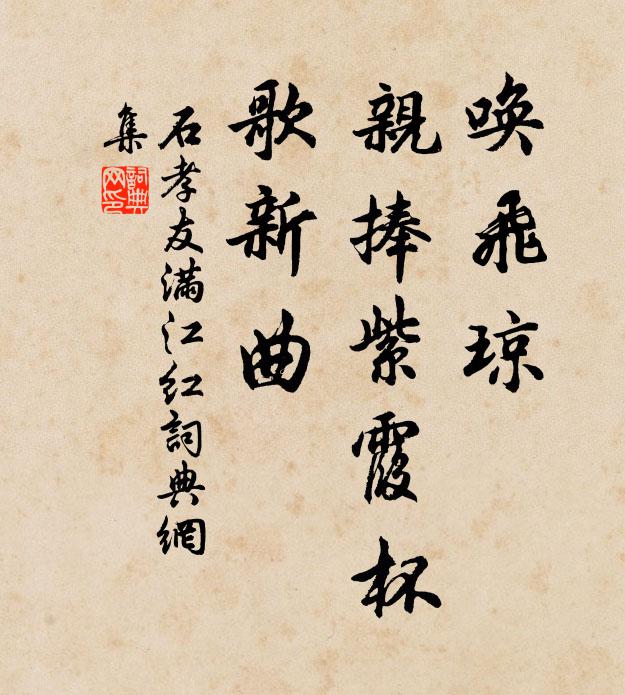 唤飛琼
親捧紫霞杯
歌新曲
石孝友满江红詞典網
集
詞典網印